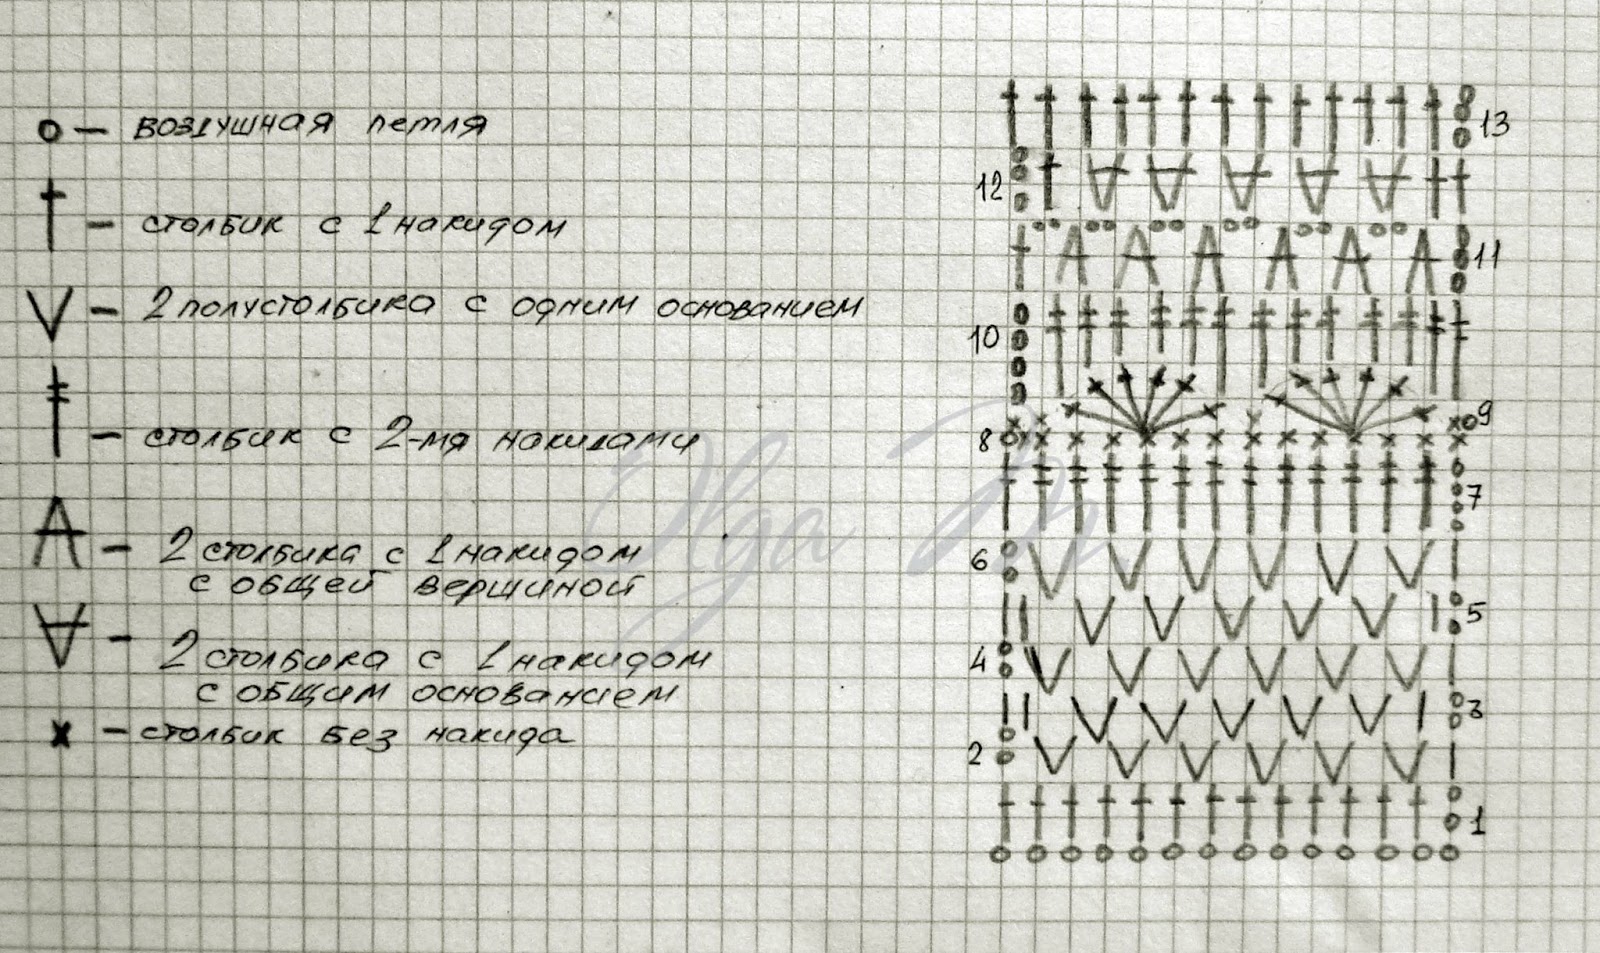 о – воздушная петля
– столбик с 1 накидом
V – 2 полустолбика с одним основанием
– столбик с 2-мя накидами
А – 2 столбика с 1 накидом
с общей вершиной
– 2 столбика с 1 накидом
с общим основанием
x – столбик без накида
13
12
11
10
9
8
7
6
5
4
3
2
1
Olga